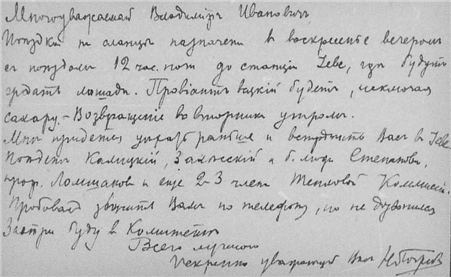 Многоуважаемый Владимиръ Ивановичъ
Поѣздка на сланцы назначена въ воскресенье вечеромъ
съ поѣздомъ 12 час. ночи до станціи Іеве, гдѣ будутъ
ждать лошади. Провіантъ всякій будетъ, исключая
сахару. - Возвращеніе во вторникъ утромъ.
Мнѣ придется уѣхать раньше и встрѣтить Васъ въ Іеве
Поѣдутъ Калицкій, и б. мож. Степановъ,
проф. Ломшаковъ и еще 2-3 члена Тепловой Комиссіи.
Пробовалъ звонить Вамъ по телефону, но не дозвонился
Завтра буду въ Комитетѣ
Всего лучшаго
Искренно уважающій Васъ Н. Погребовъ